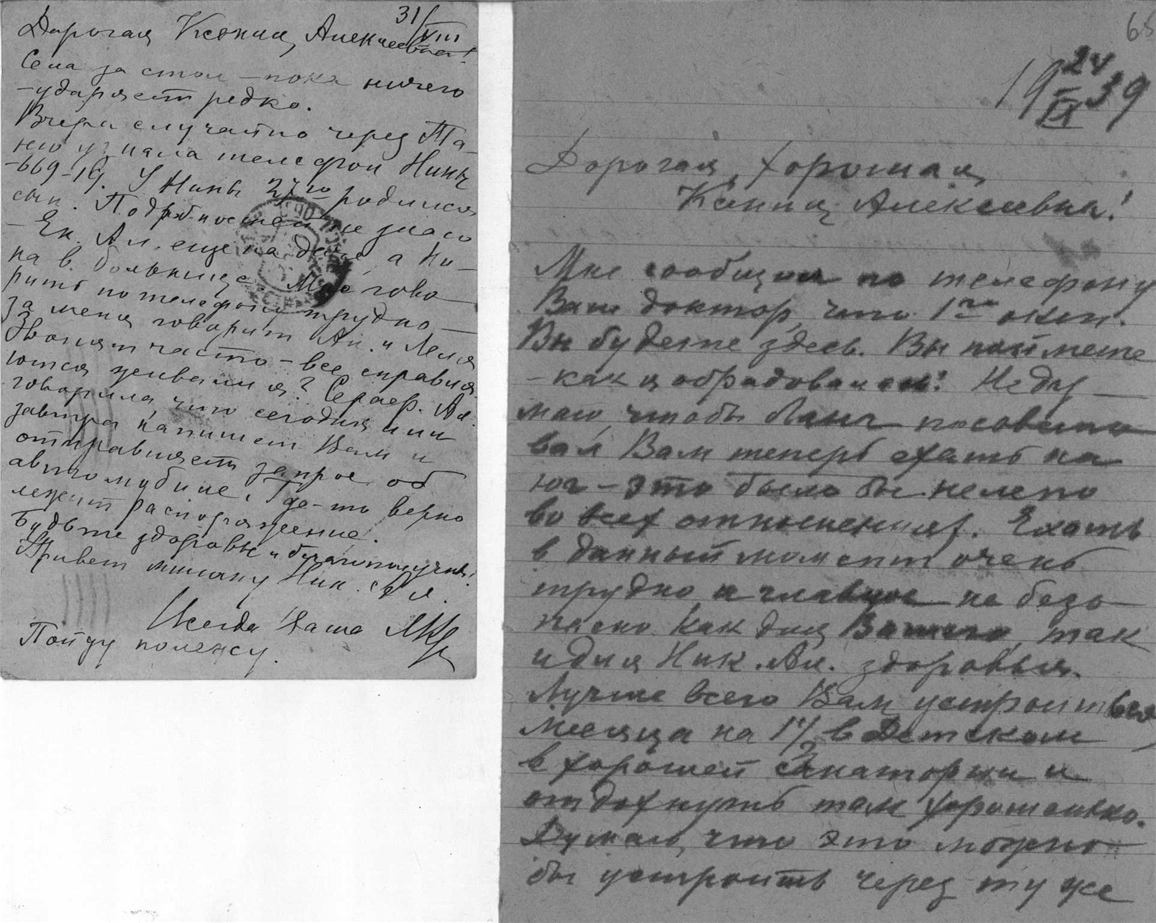 31/VIII
Дорогая Ксения Алексеевна!
Села за стол – пока ничего
– ударяет редко.
Вчера случайно через Та-
ню узнала телефон Нины
– 669-19. У Нины 27го родился
сын. Подробностей не знаю
– Ек. Ал. еще на даче, а Ни-
на в больнице. Мне гово-
рить по телефону трудно –
за меня говорит Ан. и Леля
Звонят часто – все справля-
ются уехали ли? Сераф. Ал.
говорила, что сегодня или
завтра напишет Вам и
отправляет запрос об
автомобиле. Где-то верно
лежит распоряжение.
Будьте здоровы и благополучны!
Привет милому Ник. Ал.
Всегда Ваша
Пойду полежу.
65
19 24/IX 39
Дорогая, хорошая
Ксения Алексеевна!
Мне сообщил по телефону
Ваш доктор, что 1го окт.
Вы будете здесь. Вы поймете
– как я обрадовалась! Не ду-
маю, чтобы Ланг посовето-
вал Вам теперь ехать на
юг – это было бы нелепо
во всех отношениях. Ехать
в данный момент очень
трудно и главное не безо-
пасно как для Вашего, так
и для Ник. Ал. здоровья.
Лучше всего Вам устроиться
месяца на 1½ в Детском,
в хорошей санатории и
отдохнуть там хорошенько.
Думаю, что это можно
бы устроить через ту же